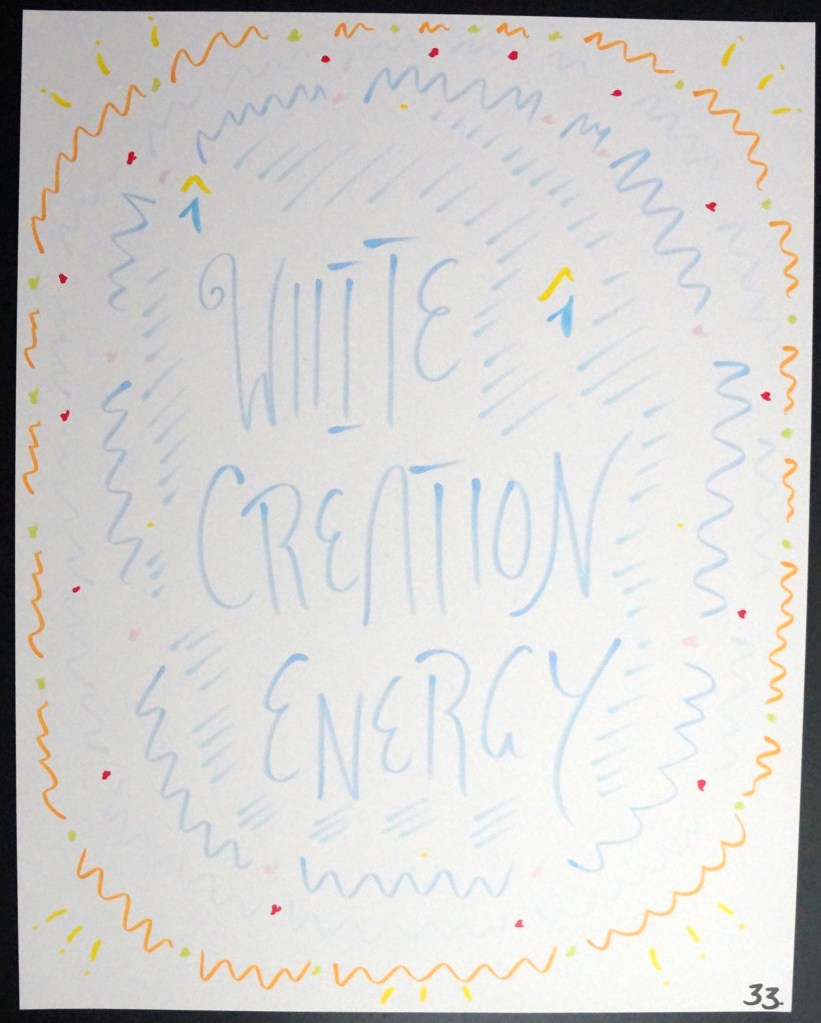 WHITE
CREATION
ENERGY
33.